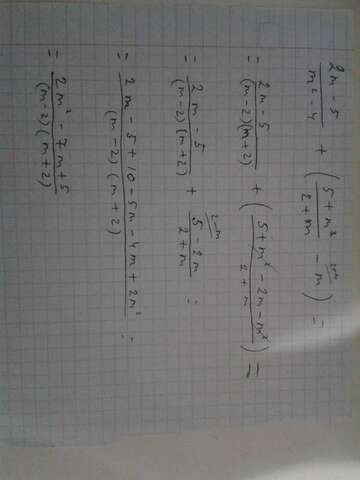 2m - 5 / m² - 4 + (5 + m² / 2 + m - m / 1) =
= 2m - 5 / (m-2)(m+2) + (5 + m² - 2m - m² / 2 + m) =
= 2m - 5 / (m-2)(m+2) + 5 - 2m / 2 + m =
= 2m - 5 + 10 - 5m - 4m + 2m² / (m-2)(m+2) =
= 2m² - 7m + 5 / (m-2)(m+2)